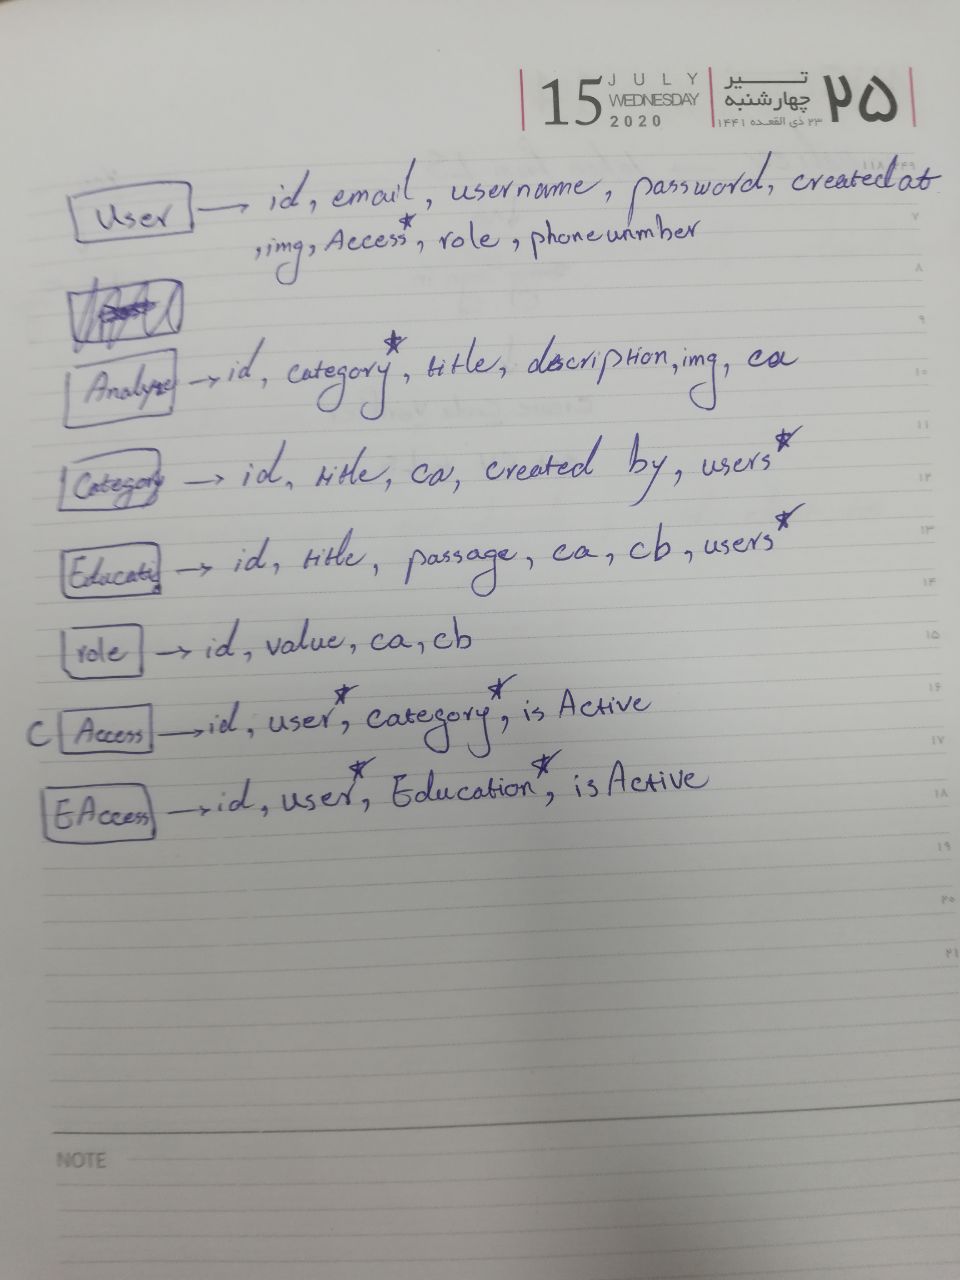 15 JULY WEDNESDAY 2020 تیر چهارشنبه ۲۳ ذی القعده ۱۴۴۱ ۲۵
User → id, email, username, password, created at
, img, Access*, role, phone unmber
Analyze → id, category*, title, description, img, ca
Category → id, title, ca, created by, users*
Educati → id, title, passage, ca, cb, users*
role → id, value, ca, cb
C Access → id, user*, category*, is Active
EAccess → id, user*, Education*, is Active
۷
۸
۹
۱۰
۱۱
۱۲
۱۳
۱۴
۱۵
۱۶
۱۷
۱۸
۱۹
۲۰
۲۱
NOTE